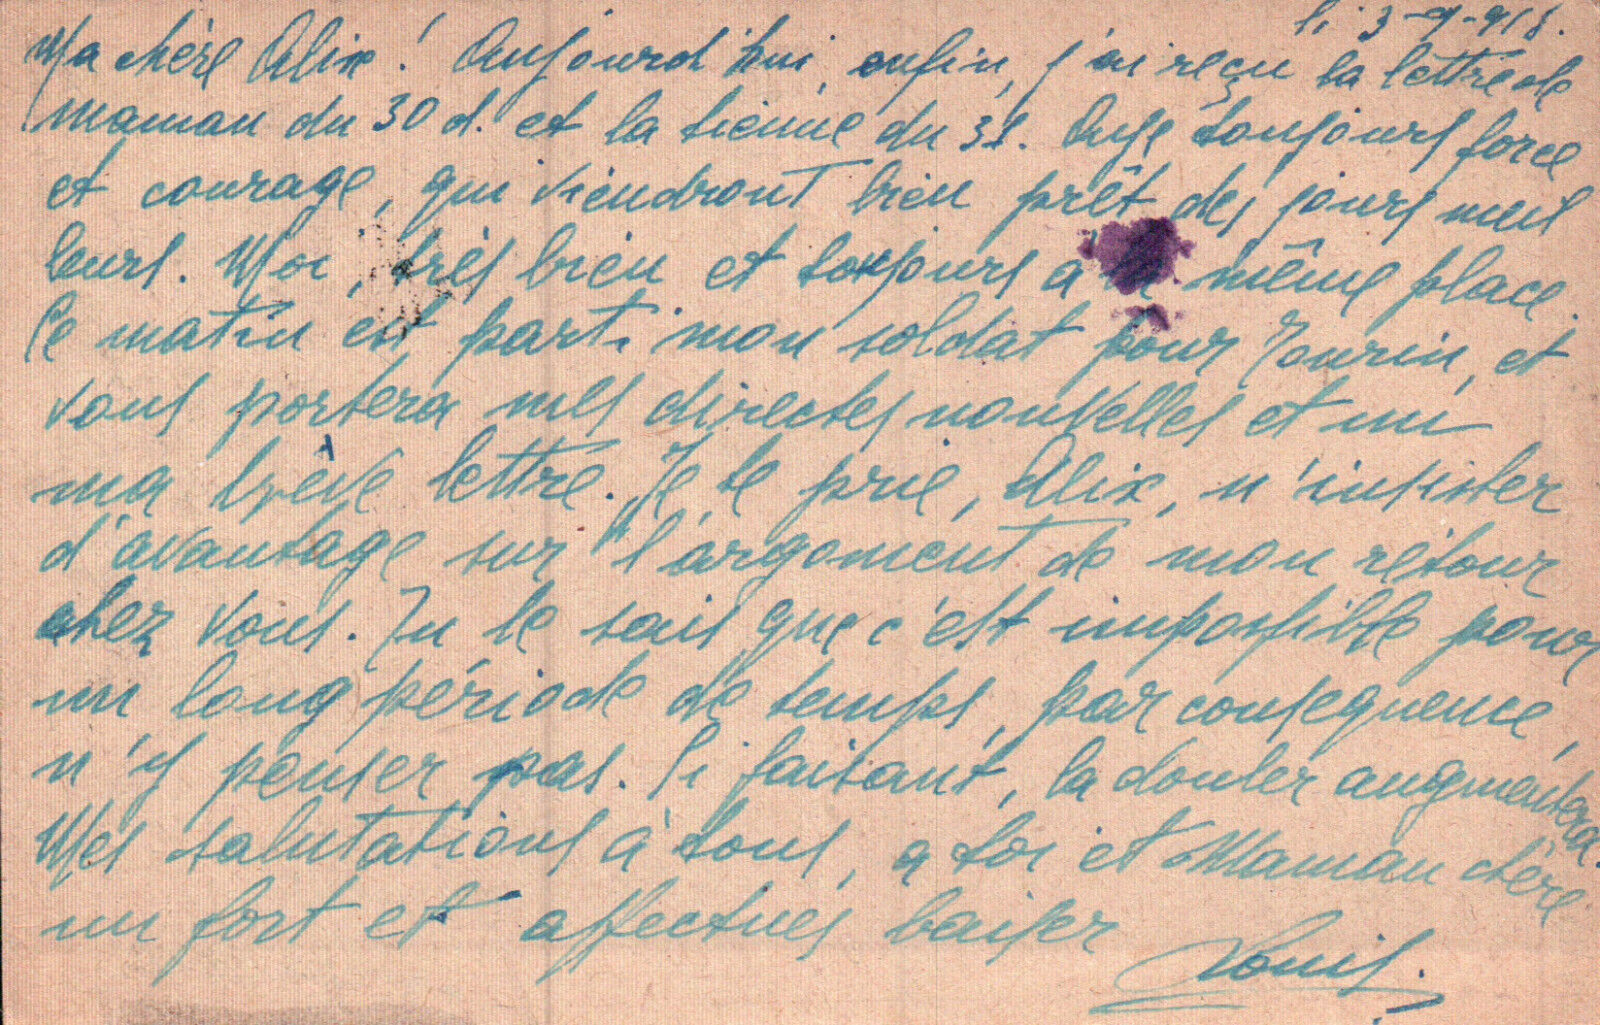 li 3-9-918.
Ma chère Alix! Aujourd'hui, enfin, j'ai reçu la lettre de
maman du 30 d. et la tienne du 31. Aye toujours force
et courage, qui viendront bien prêt des jours meil
leurs. Moi, très bien et toujours à la même place.
Ce matin est parti mon soldat pour Tourin, et
vous portera mes directes nouvelles et un
ma brève lettre. Je te prie, Alix, n'insister
d'avantage sur l'argoment de mon retour
chez vous. Tu le sais que c'est impossible pour
un long période de temps, par consequence,
n'y penser pas. Si faisant, la douler augmentera.
Mes salutations à tous, a toi et Maman chère
un fort et affectues baiser
Louis.